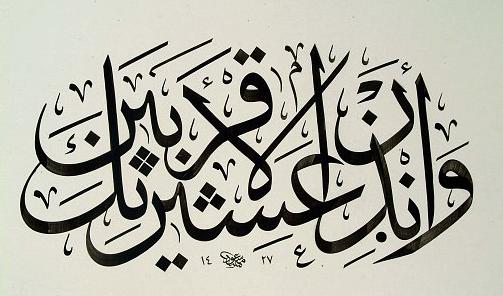 وأنذر عشيرتك الأقربين
١٤ ٢٧